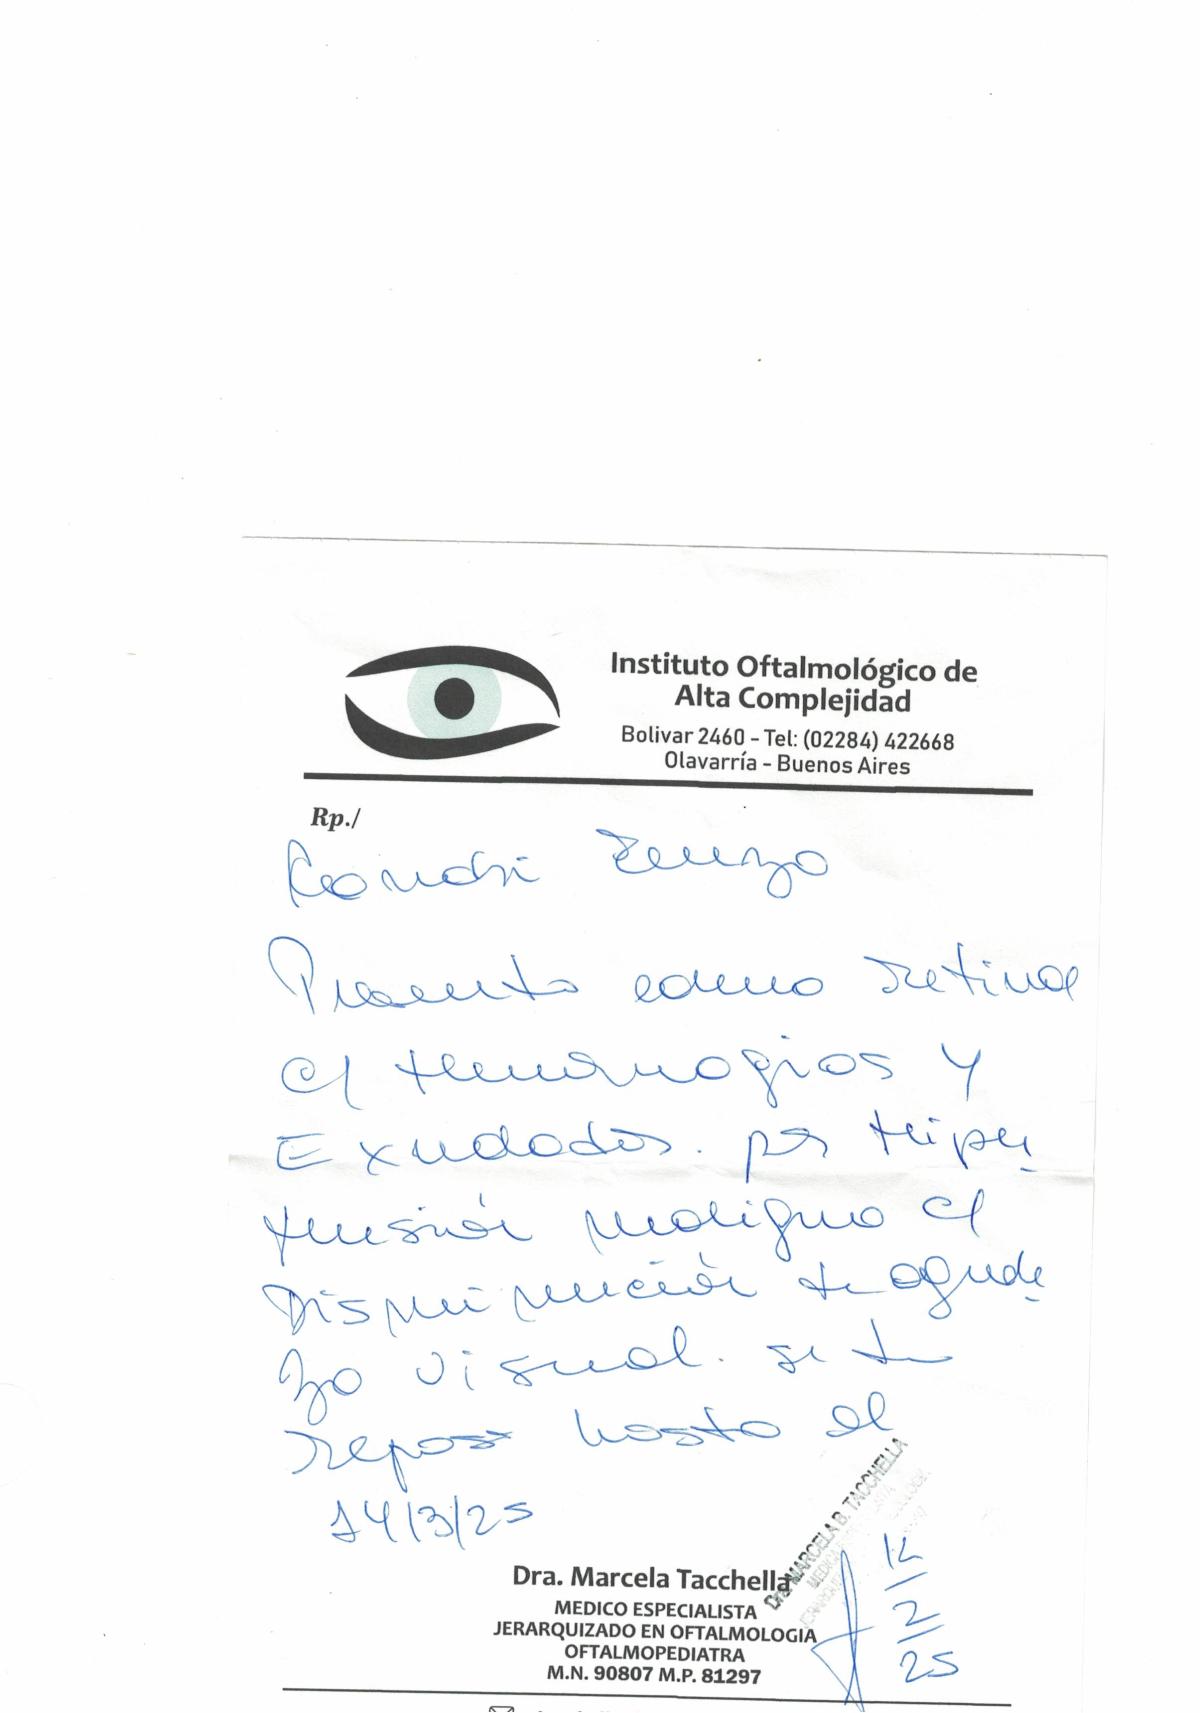 Instituto Oftalmológico de
Alta Complejidad
Bolivar 2460 - Tel: (02284) 422668
Olavarría - Buenos Aires
Rp./
Enzo
Presenta edema retinal
c/ hemorragias y
Exudados. por hiper
tensión maligna c/
Disminución de agude
za visual. se da
reposo hasta el
14/3/25
Dra. MARCELA B. TACCHELLA
Dra. Marcela Tacchella
MEDICO ESPECIALISTA
JERARQUIZADO EN OFTALMOLOGIA
OFTALMOPEDIATRA
M.N. 90807 M.P. 81297
2
25